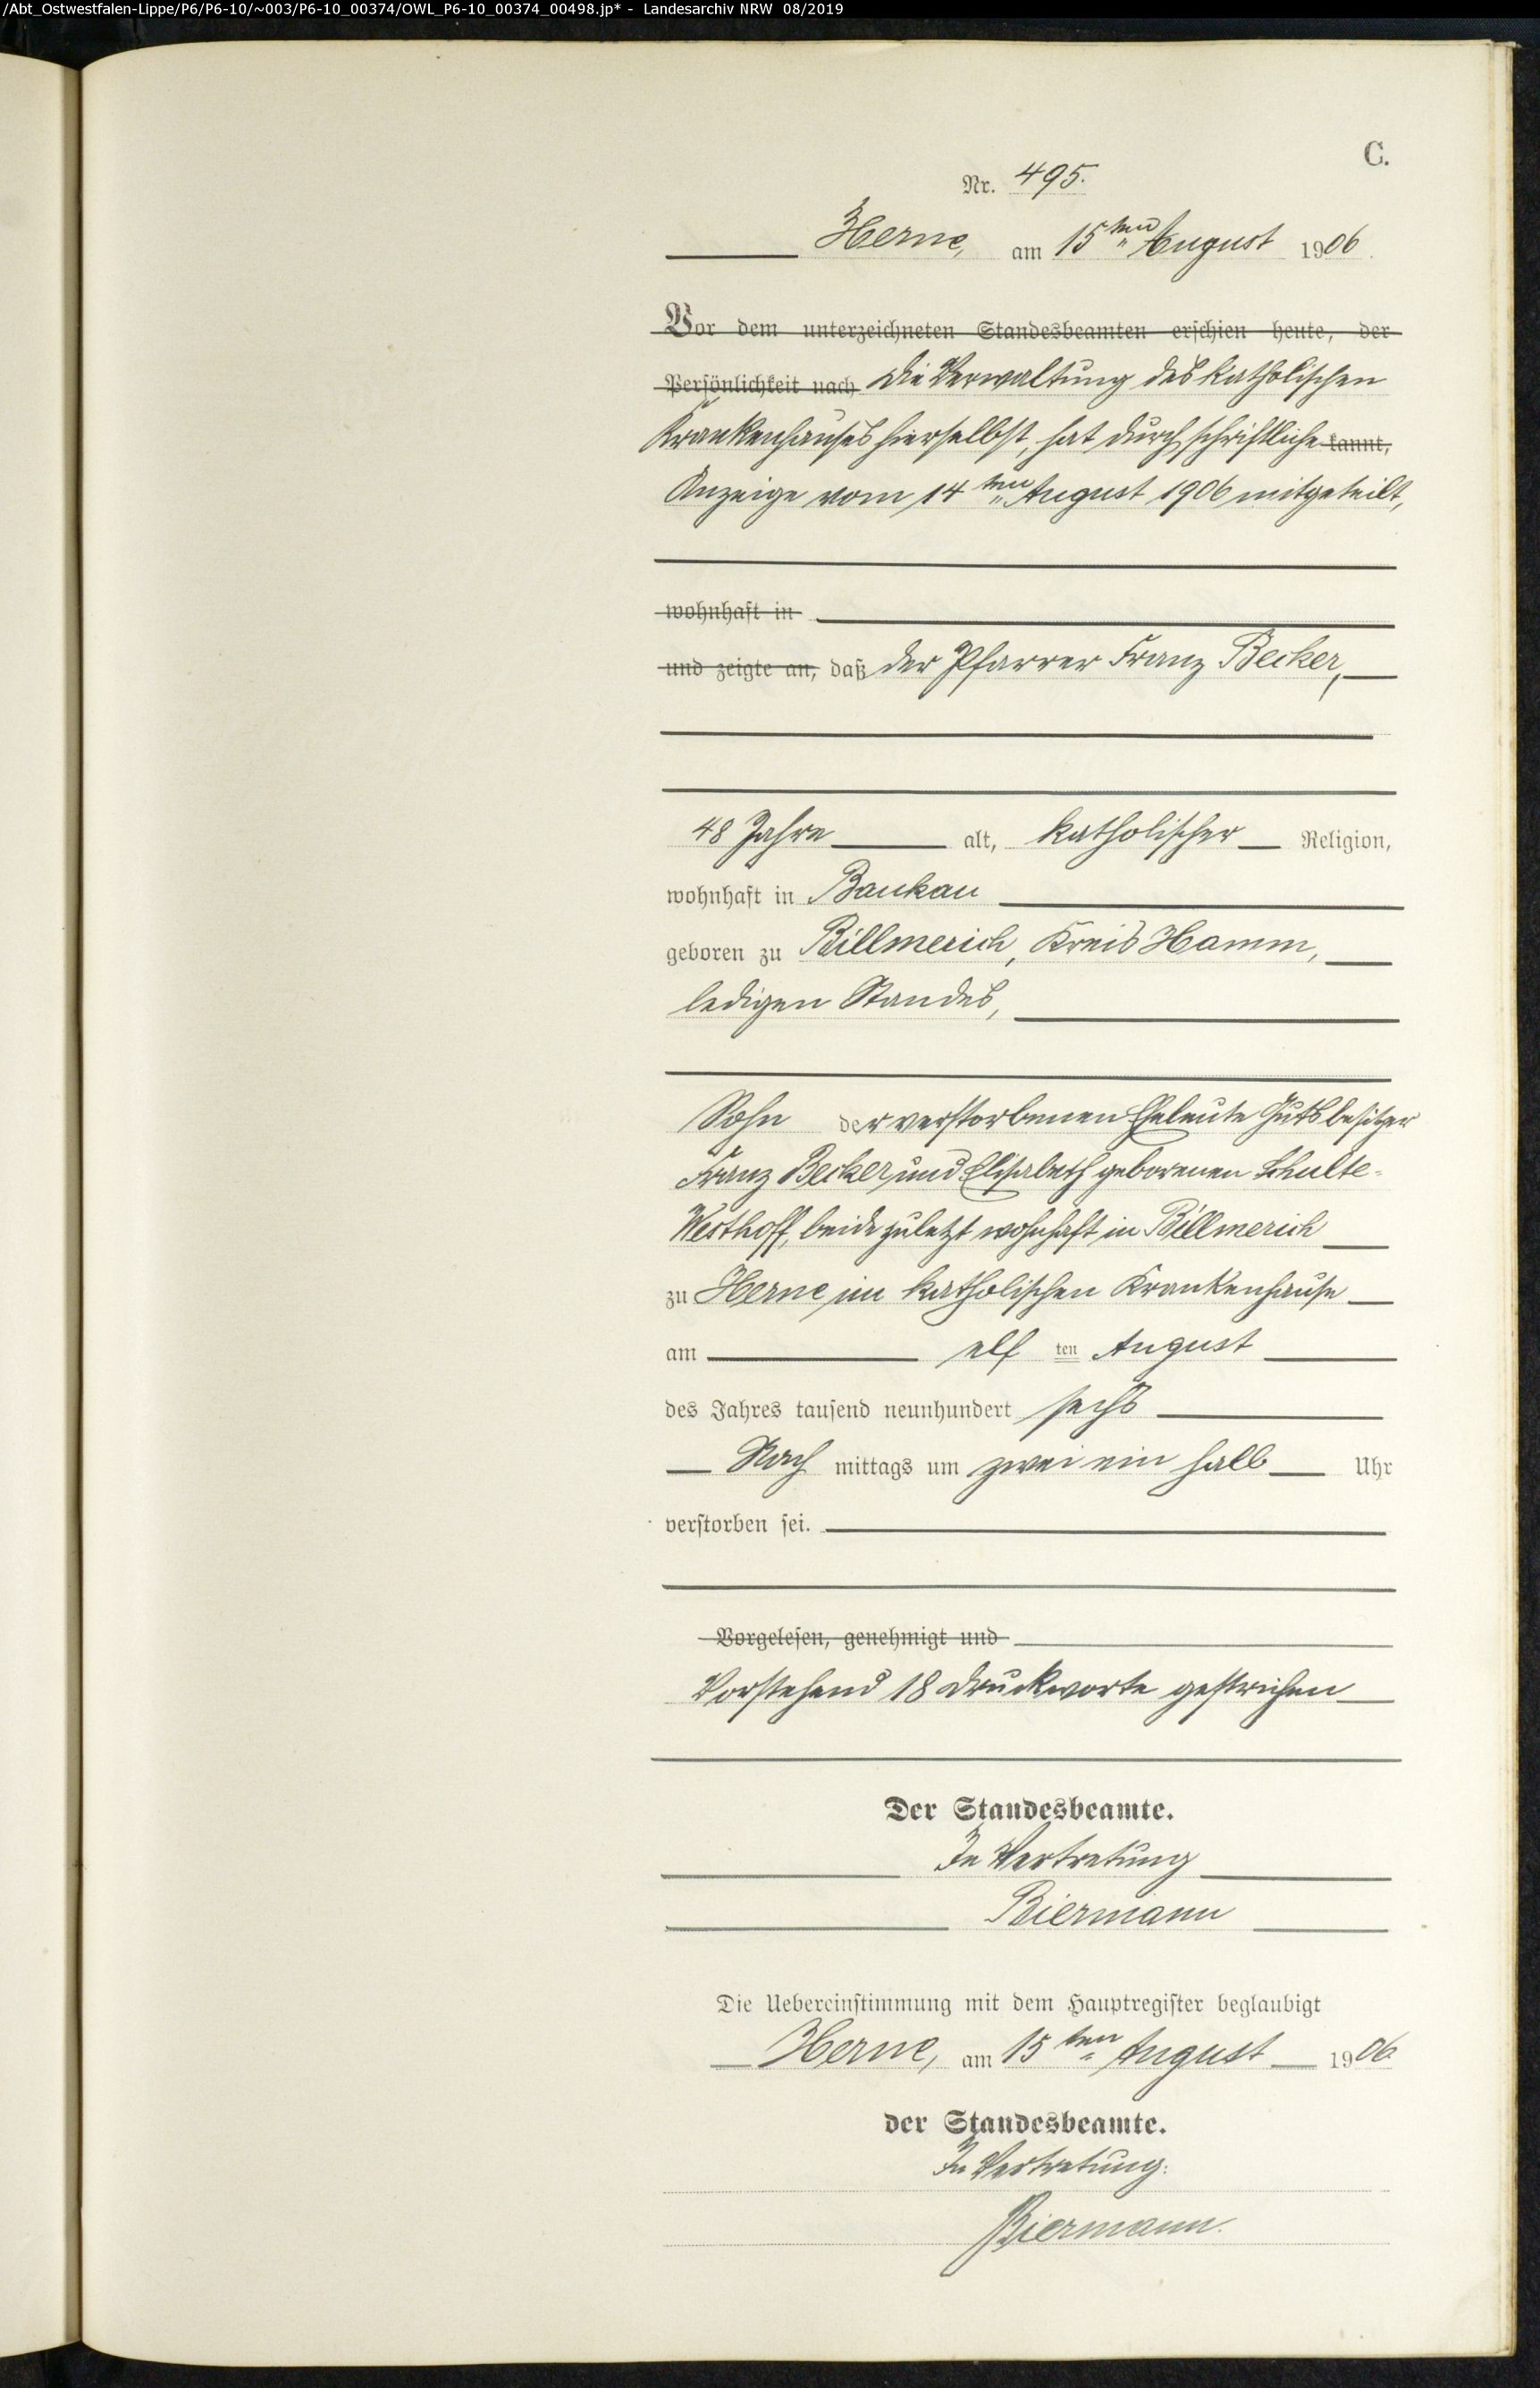 /Abt_Ostwestfalen-Lippe/P6/P6-10/~003/P6-10_00374/OWL_P6-10_00374_00498.jp* - Landesarchiv NRW 08/2019
C.
Nr. 495.
Herne, am 15ten August 1906.
Vor dem unterzeichneten Standesbeamten erschien heute, der
Persönlichkeit nach Die Verwaltung des katholischen
Krankenhauses hierselbst, hat durch schriftliche kannt,
Anzeige vom 14ten August 1906 mitgeteilt,
wohnhaft in
und zeigte an, daß der Pfarrer Franz Becker,
48 Jahre alt, katholischer Religion,
wohnhaft in Baukau
geboren zu Billmerich, Kreis Hamm,
ledigen Standes,
Sohn der verstorbenen Eheleute Gutsbesitzer
Franz Becker und Elisabeth geborenen Schulte-
Westhoff, beide zuletzt wohnhaft in Billmerich
zu Herne im katholischen Krankenhause
am elf ten August
des Jahres tausend neunhundert sechs
Nach mittags um zwei ein halb Uhr
verstorben sei.
Vorgelesen, genehmigt und
Vorstehend 18 Druckworte gestrichen
Der Standesbeamte.
In Vertretung
Biermann
Die Uebereinstimmung mit dem Hauptregister beglaubigt
Herne, am 15ten August 1906
der Standesbeamte.
In Vertretung:
Biermann.